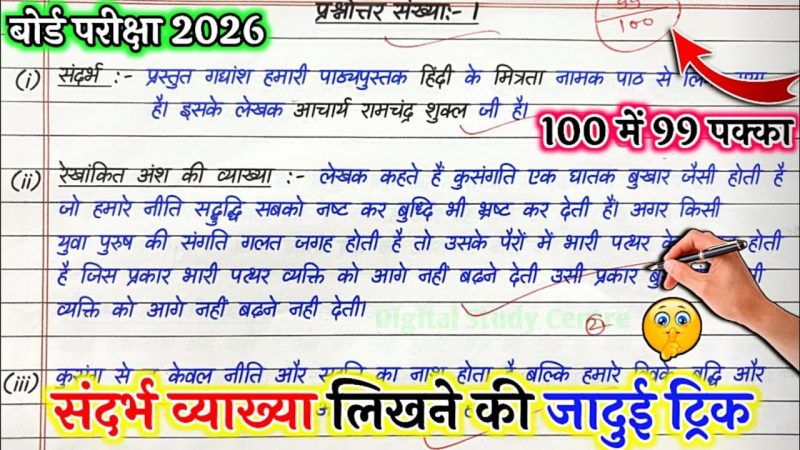 बोर्ड परीक्षा 2026
प्रश्नोत्तर संख्या:- 1
99
100
(i) संदर्भ :- प्रस्तुत गद्यांश हमारी पाठ्यपुस्तक हिंदी के मित्रता नामक पाठ से
है। इसके लेखक आचार्य रामचंद्र शुक्ल जी है।
100 में 99 पक्का
(ii) रेखांकित अंश की व्याख्या :- लेखक कहते हैं कुसंगति एक घातक बुखार जैसी होती है
जो हमारे नीति सद्बुद्धि सबको नष्ट कर बुध्दि भी भ्रष्ट कर देती है। अगर किसी
युवा पुरुष की संगति गलत जगह होती है तो उसके पैरों में भारी पत्थर होती
है जिस प्रकार भारी पत्थर व्यक्ति को आगे नही बढ़ने देती उसी प्रकार
व्यक्ति को आगे नही बढ़ने नही देती।
Digital Study Centre
2
(iii) कुसंग से केवल नीति और का नाश होता है बल्कि हमारे बुद्धि और
संदर्भ व्याख्या लिखने की जादुई ट्रिक